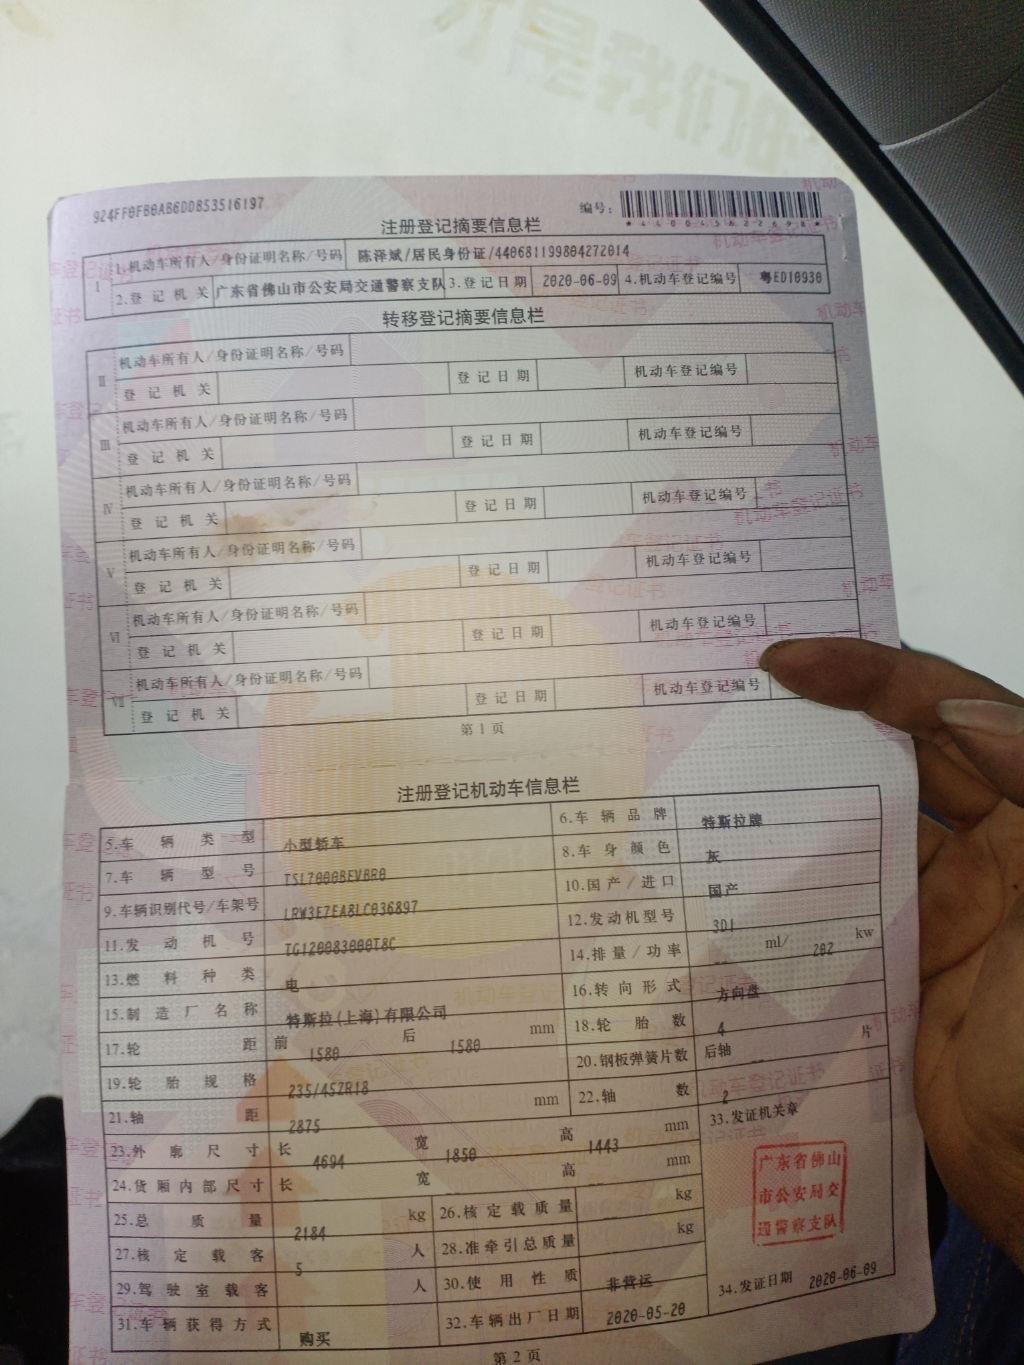 924FF0FB0AB6DD853516197
编号：
*440045622698*
注册登记摘要信息栏
I 1.机动车所有人/身份证明名称/号码 陈泽斌/居民身份证/440681199804272014
2.登记机关 广东省佛山市公安局交通警察支队 3.登记日期 2020-06-09 4.机动车登记编号 粤ED10930
转移登记摘要信息栏
II 机动车所有人/身份证明名称/号码
登记机关 登记日期 机动车登记编号
III 机动车所有人/身份证明名称/号码
登记机关 登记日期 机动车登记编号
IV 机动车所有人/身份证明名称/号码
登记机关 登记日期 机动车登记编号
V 机动车所有人/身份证明名称/号码
登记机关 登记日期 机动车登记编号
VI 机动车所有人/身份证明名称/号码
登记机关 登记日期 机动车登记编号
VII 机动车所有人/身份证明名称/号码
登记机关 登记日期 机动车登记编号
第1页
注册登记机动车信息栏
5.车辆类型 小型轿车 6.车辆品牌 特斯拉牌
7.车辆型号 TSL7000BEVBR0 8.车身颜色 灰
9.车辆识别代号/车架号 LRW3E7EA8LC036897 10.国产/进口 国产
11.发动机号 TG120083000T8C 12.发动机型号 3D1
13.燃料种类 电 14.排量/功率 -- ml/ 202 kw
15.制造厂名称 特斯拉(上海)有限公司 16.转向形式 方向盘
17.轮距 前 1580 后 1580 mm 18.轮胎数 4
19.轮胎规格 235/45ZR18 20.钢板弹簧片数 后轴 -- 片
21.轴距 2875 mm 22.轴数 2
23.外廓尺寸 长 4694 宽 1850 高 1443 mm 33.发证机关章
24.货厢内部尺寸 长 -- 宽 -- 高 -- mm
广东省佛山
市公安局交
通警察支队
25.总质量 2184 kg 26.核定载质量 kg
27.核定载客 5 人 28.准牵引总质量 kg
29.驾驶室载客 人 30.使用性质 非营运 34.发证日期 2020-06-09
31.车辆获得方式 购买 32.车辆出厂日期 2020-05-20
第2页